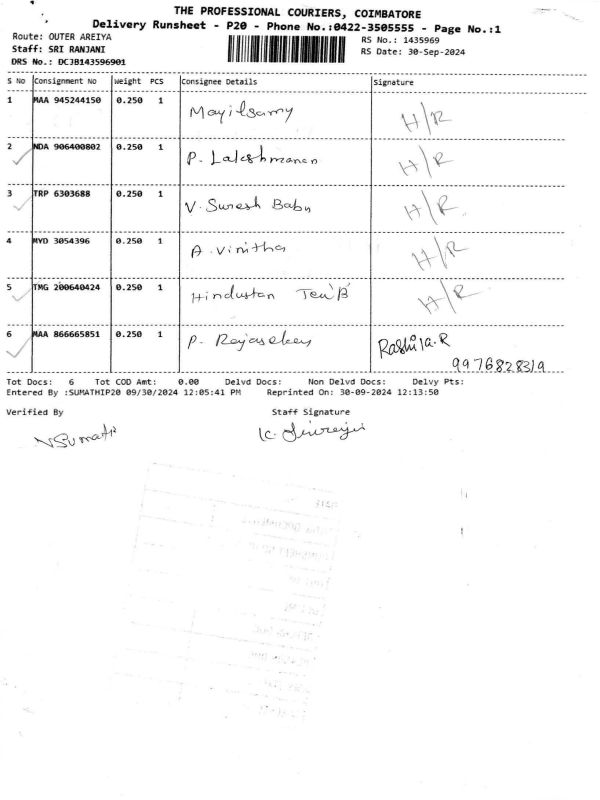 THE PROFESSIONAL COURIERS, COIMBATORE
Delivery Runsheet - P20 - Phone No.:0422-3505555 - Page No.:1
Route: OUTER AREIYA
RS No.: 1435969
Staff: SRI RANJANI
RS Date: 30-Sep-2024
DRS No.: DCJB143596901
S No Consignment No Weight PCS Consignee Details Signature
1 MAA 945244150 0.250 1 Mayilsamy H/R
2 NDA 906400802 0.250 1 P. Lakshmanan H/R
3 TRP 6303688 0.250 1 V. Suresh Babu H/R
4 MYD 3054396 0.250 1 A. Vinitha H/R
5 TMG 200640424 0.250 1 Hindustan Tea 'B' H/R
6 MAA 866665851 0.250 1 P. Rajasekar Rashila.R
9976828319
Tot Docs: 6 Tot COD Amt: 0.00 Delvd Docs: Non Delvd Docs: Delvy Pts:
Entered By :SUMATHIP20 09/30/2024 12:05:41 PM Reprinted On: 30-09-2024 12:13:50
Verified By Staff Signature
N Sumathi